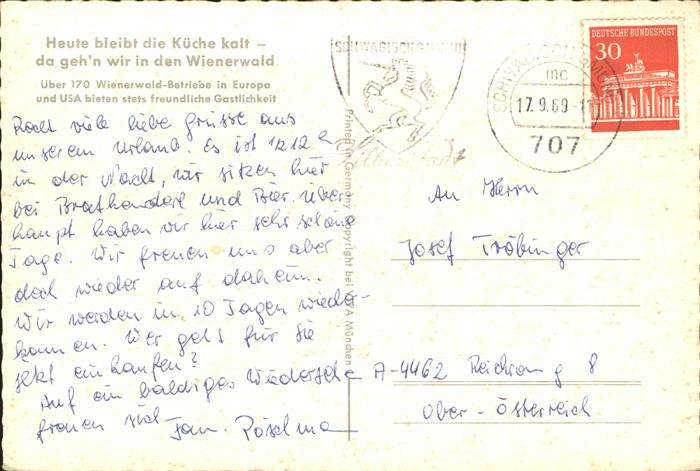 Heute bleibt die Küche kalt –
da geh'n wir in den Wienerwald
Über 170 Wienerwald-Betriebe in Europa
und USA bieten stets freundliche Gastlichkeit
Recht viele liebe Grüsse aus
unserem Urlaub. Es ist 1/2 12 h
in der Nacht, wir sitzen hier
bei Brathenderl und Bier. Über
haupt haben wir hier sehr schöne
Tage. Wir freuen uns aber
doch wieder auf daheim.
Wir werden in 10 Tagen wieder-
kommen. Wer geht für Sie
jetzt einkaufen?
Auf ein baldiges Wiedersehen
freuen sich
Fam. Pöschma
Printed in Germany Copyright bei VFA München
SCHWÄBISCH GMÜND
SCHWÄBISCH GMÜND
mc
17.9.69-1
707
DEUTSCHE BUNDESPOST
30
An Herrn
Josef Tröbinger
A-4462 Reichraming 8
Ober-Österreich